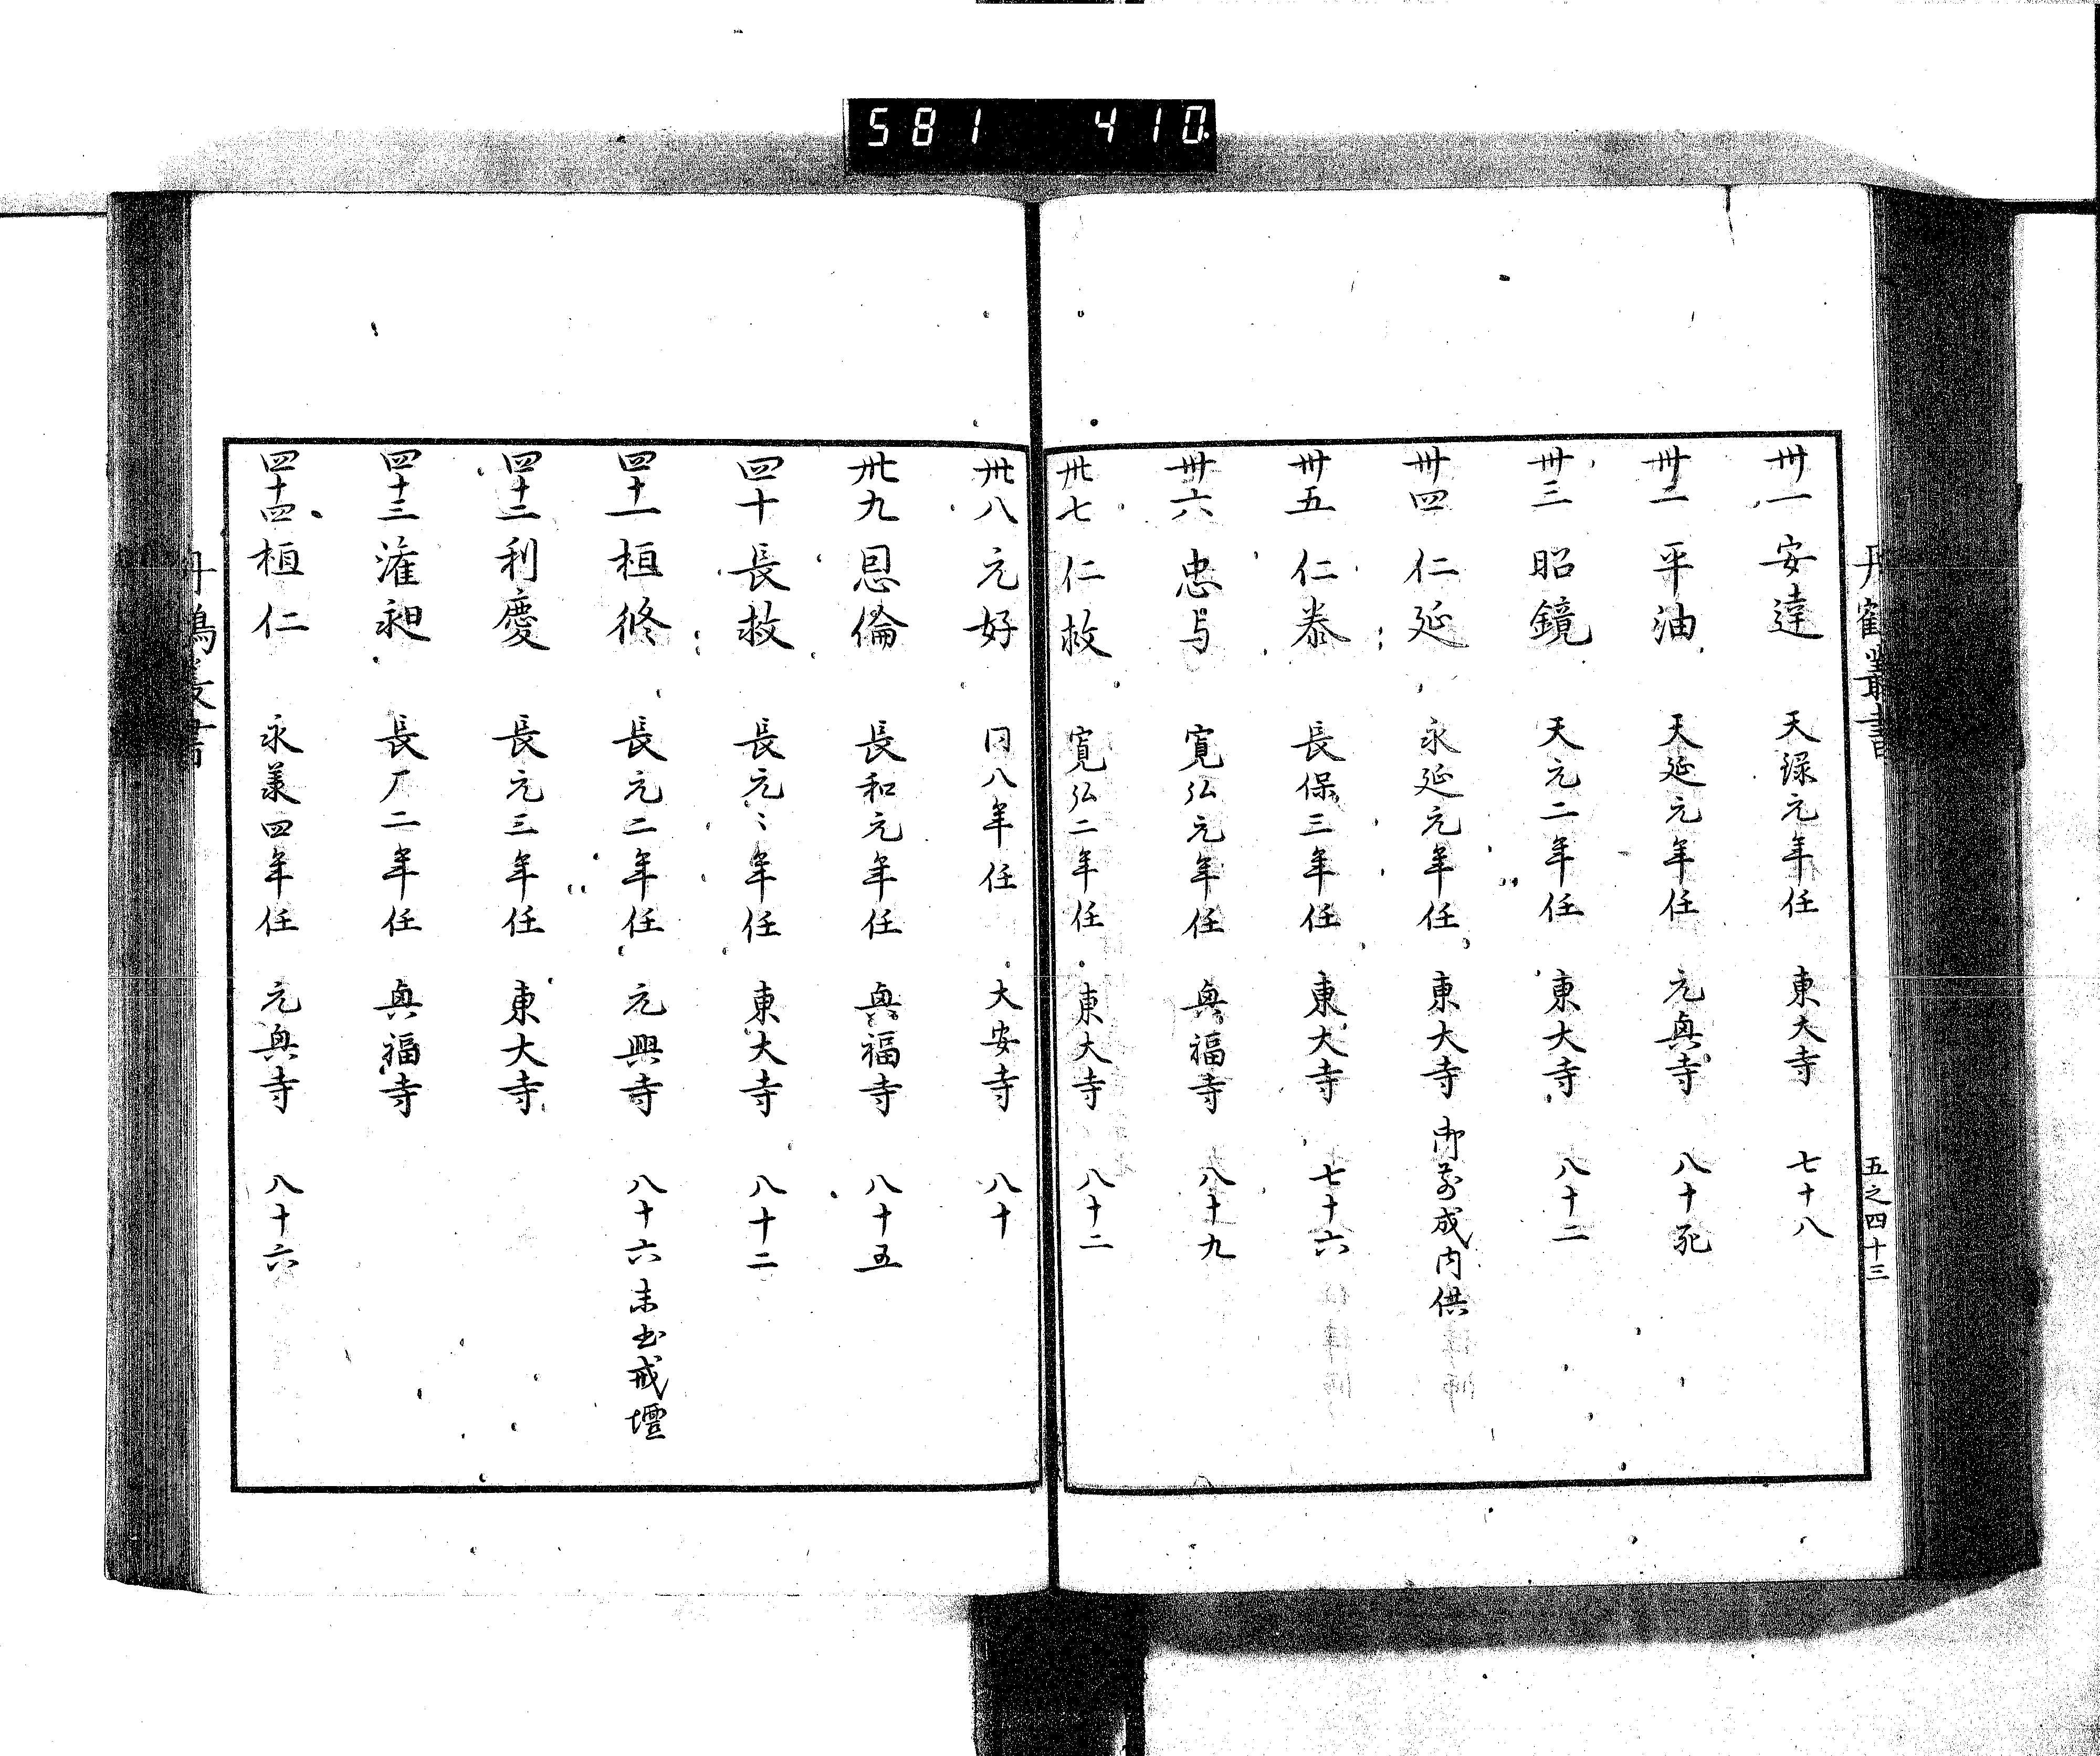 581 410
丹鶴叢書
五之四十三
卅一 安達 天禄元年任 東大寺 七十八
卅二 平油 天延元年任 元興寺 八十死
卅三 昭鏡 天元二年任 東大寺 八十二
卅四 仁延 永延元年任 東大寺 御前成内供
卅五 仁泰 長保三年任 東大寺 七十六
卅六 忠与 寛弘元年任 興福寺 八十九
卅七 仁救 寛弘二年任 東大寺 八十二
卅八 元好 同八年任 大安寺 八十
卅九 恩倫 長和元年任 興福寺 八十五
四十 長救 長元〻年任 東大寺 八十二
四十一 桓修 長元二年任 元興寺 八十六 未出戒壇
四十二 利慶 長元三年任 東大寺
四十三 昶 長厂二年任 興福寺
四十四 桓仁 永義四年任 元興寺 八十六